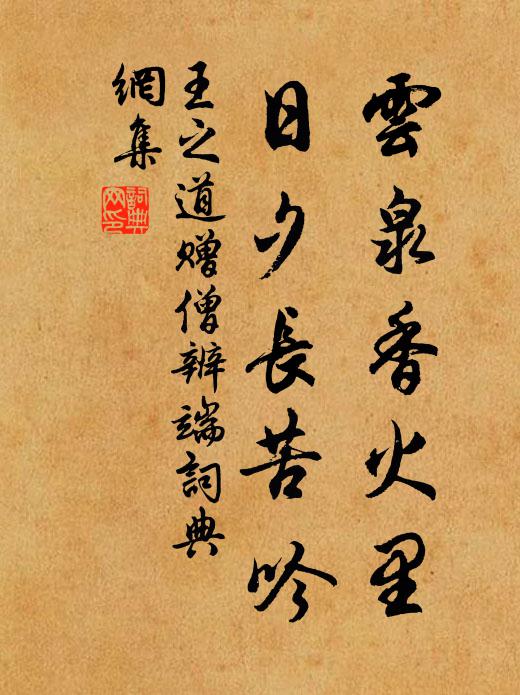 雲泉香火里
日夕長苦吟
王之道贈僧辨端詞典
網集
詞典
网印